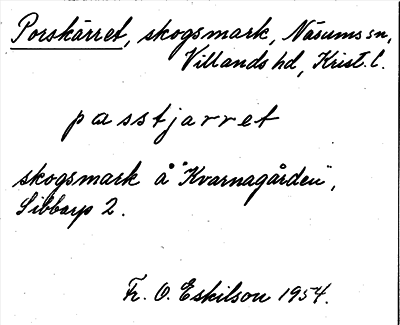 Porskärret, skogsmark, Näsums sn,
Villands hd, Krist. l.
passtjarret
skogsmark å "Kvarnagården",
Sibbarp 2.
Fr. O. Eskilson 1954.